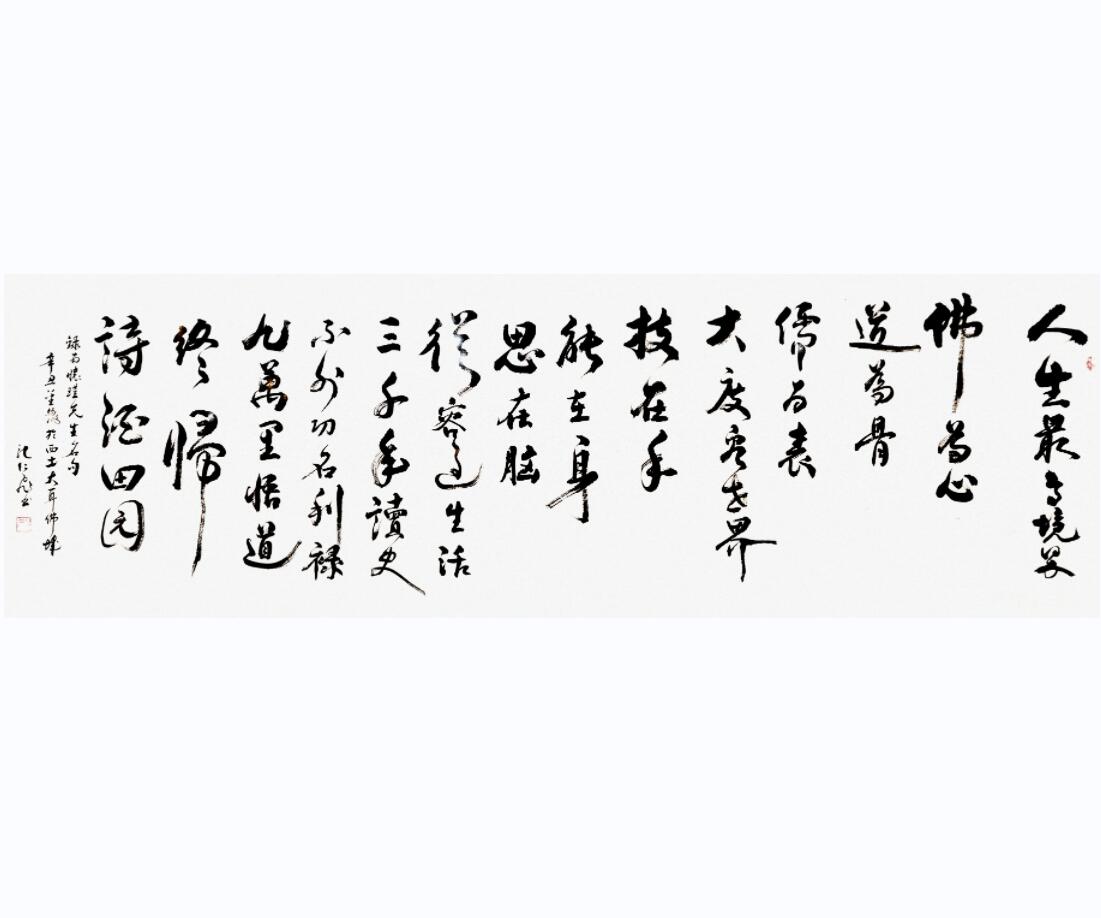 人生最高境界
佛為心
道為骨
儒為表
大度看世界
技在手
能在身
思在脑
從容過生活
三千年讀史
不外功名利禄
九萬里悟道
終歸
詩酒田园
録南懷瑾先生名句
辛丑 於西土大耳佛城